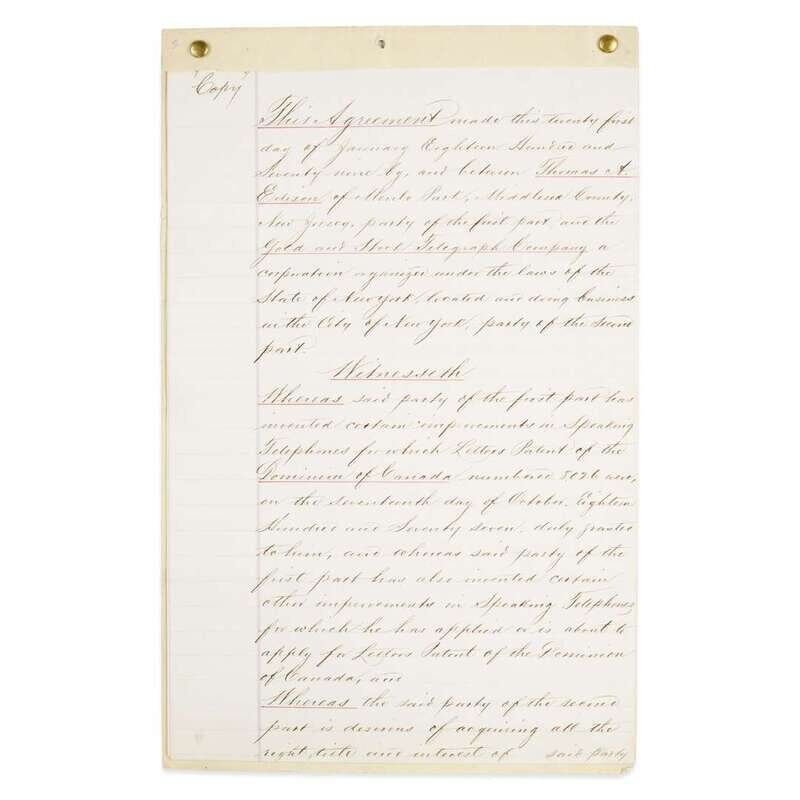 "Copy"
This Agreement made this twenty first
day of January Eighteen Hundred and
Seventy nine by, and between Thomas A.
Edison of Menlo Park, Middlesex County,
New Jersey, party of the first part, and the
Gold and Stock Telegraph Company a
corporation organized under the laws of the
State of New York, located and doing business
in the City of New York, party of the second
part.
Witnesseth
Whereas said party of the first part has
invented certain improvements in Speaking
Telephones for which Letters Patent of the
Dominion of Canada numbered 8026 were,
on the seventeenth day of October, Eighteen
Hundred and Seventy seven, duly granted
to him, and whereas said party of the
first part has also invented certain
other improvements in Speaking Telephones
for which he has applied or is about to
apply for Letters Patent of the Dominion
of Canada, and
Whereas the said party of the second
part is desirous of acquiring all the
right, title and interest of said party